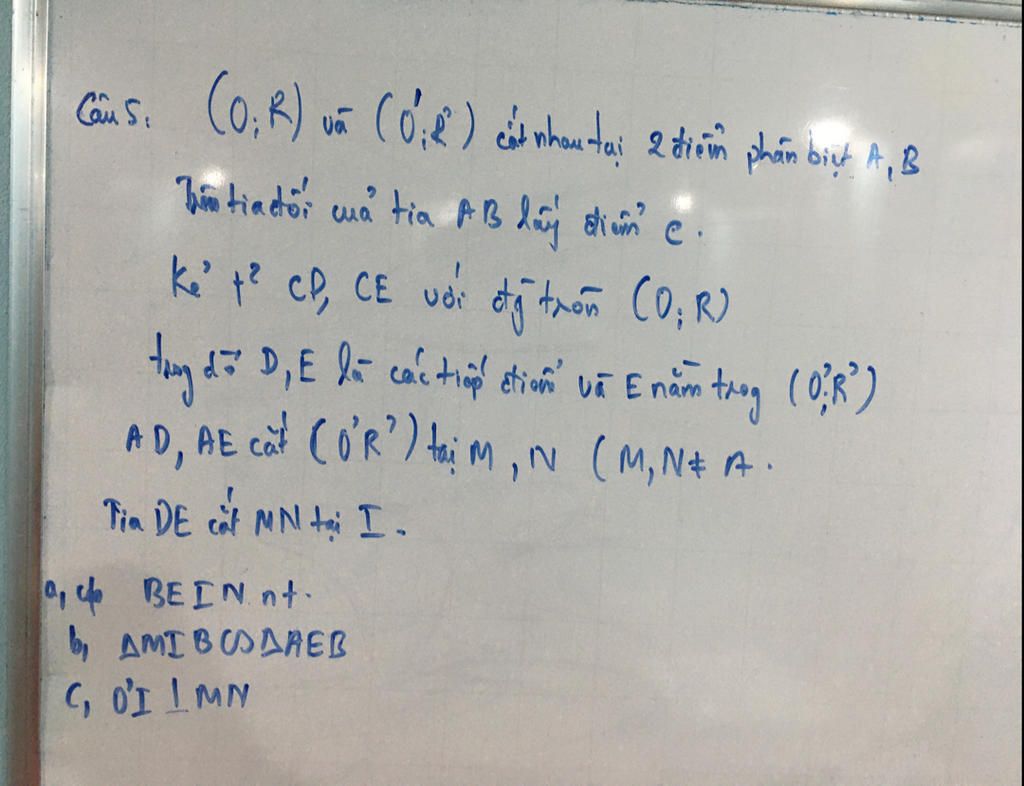 Câu 5. (O; R) và (O'; R') cắt nhau tại 2 điểm phân biệt A, B
Trên tia đối của tia AB lấy điểm C.
Kẻ t² CD, CE với đg tròn (O; R)
trong đó D, E là các tiếp điểm và E nằm trog (O'; R')
AD, AE cắt (O'R') tại M, N (M, N ≠ A.
Tia DE cắt MN tại I.
a, c/m BEIN nt.
b, ΔMIB ∽ ΔAEB
c, O'I ⊥ MN